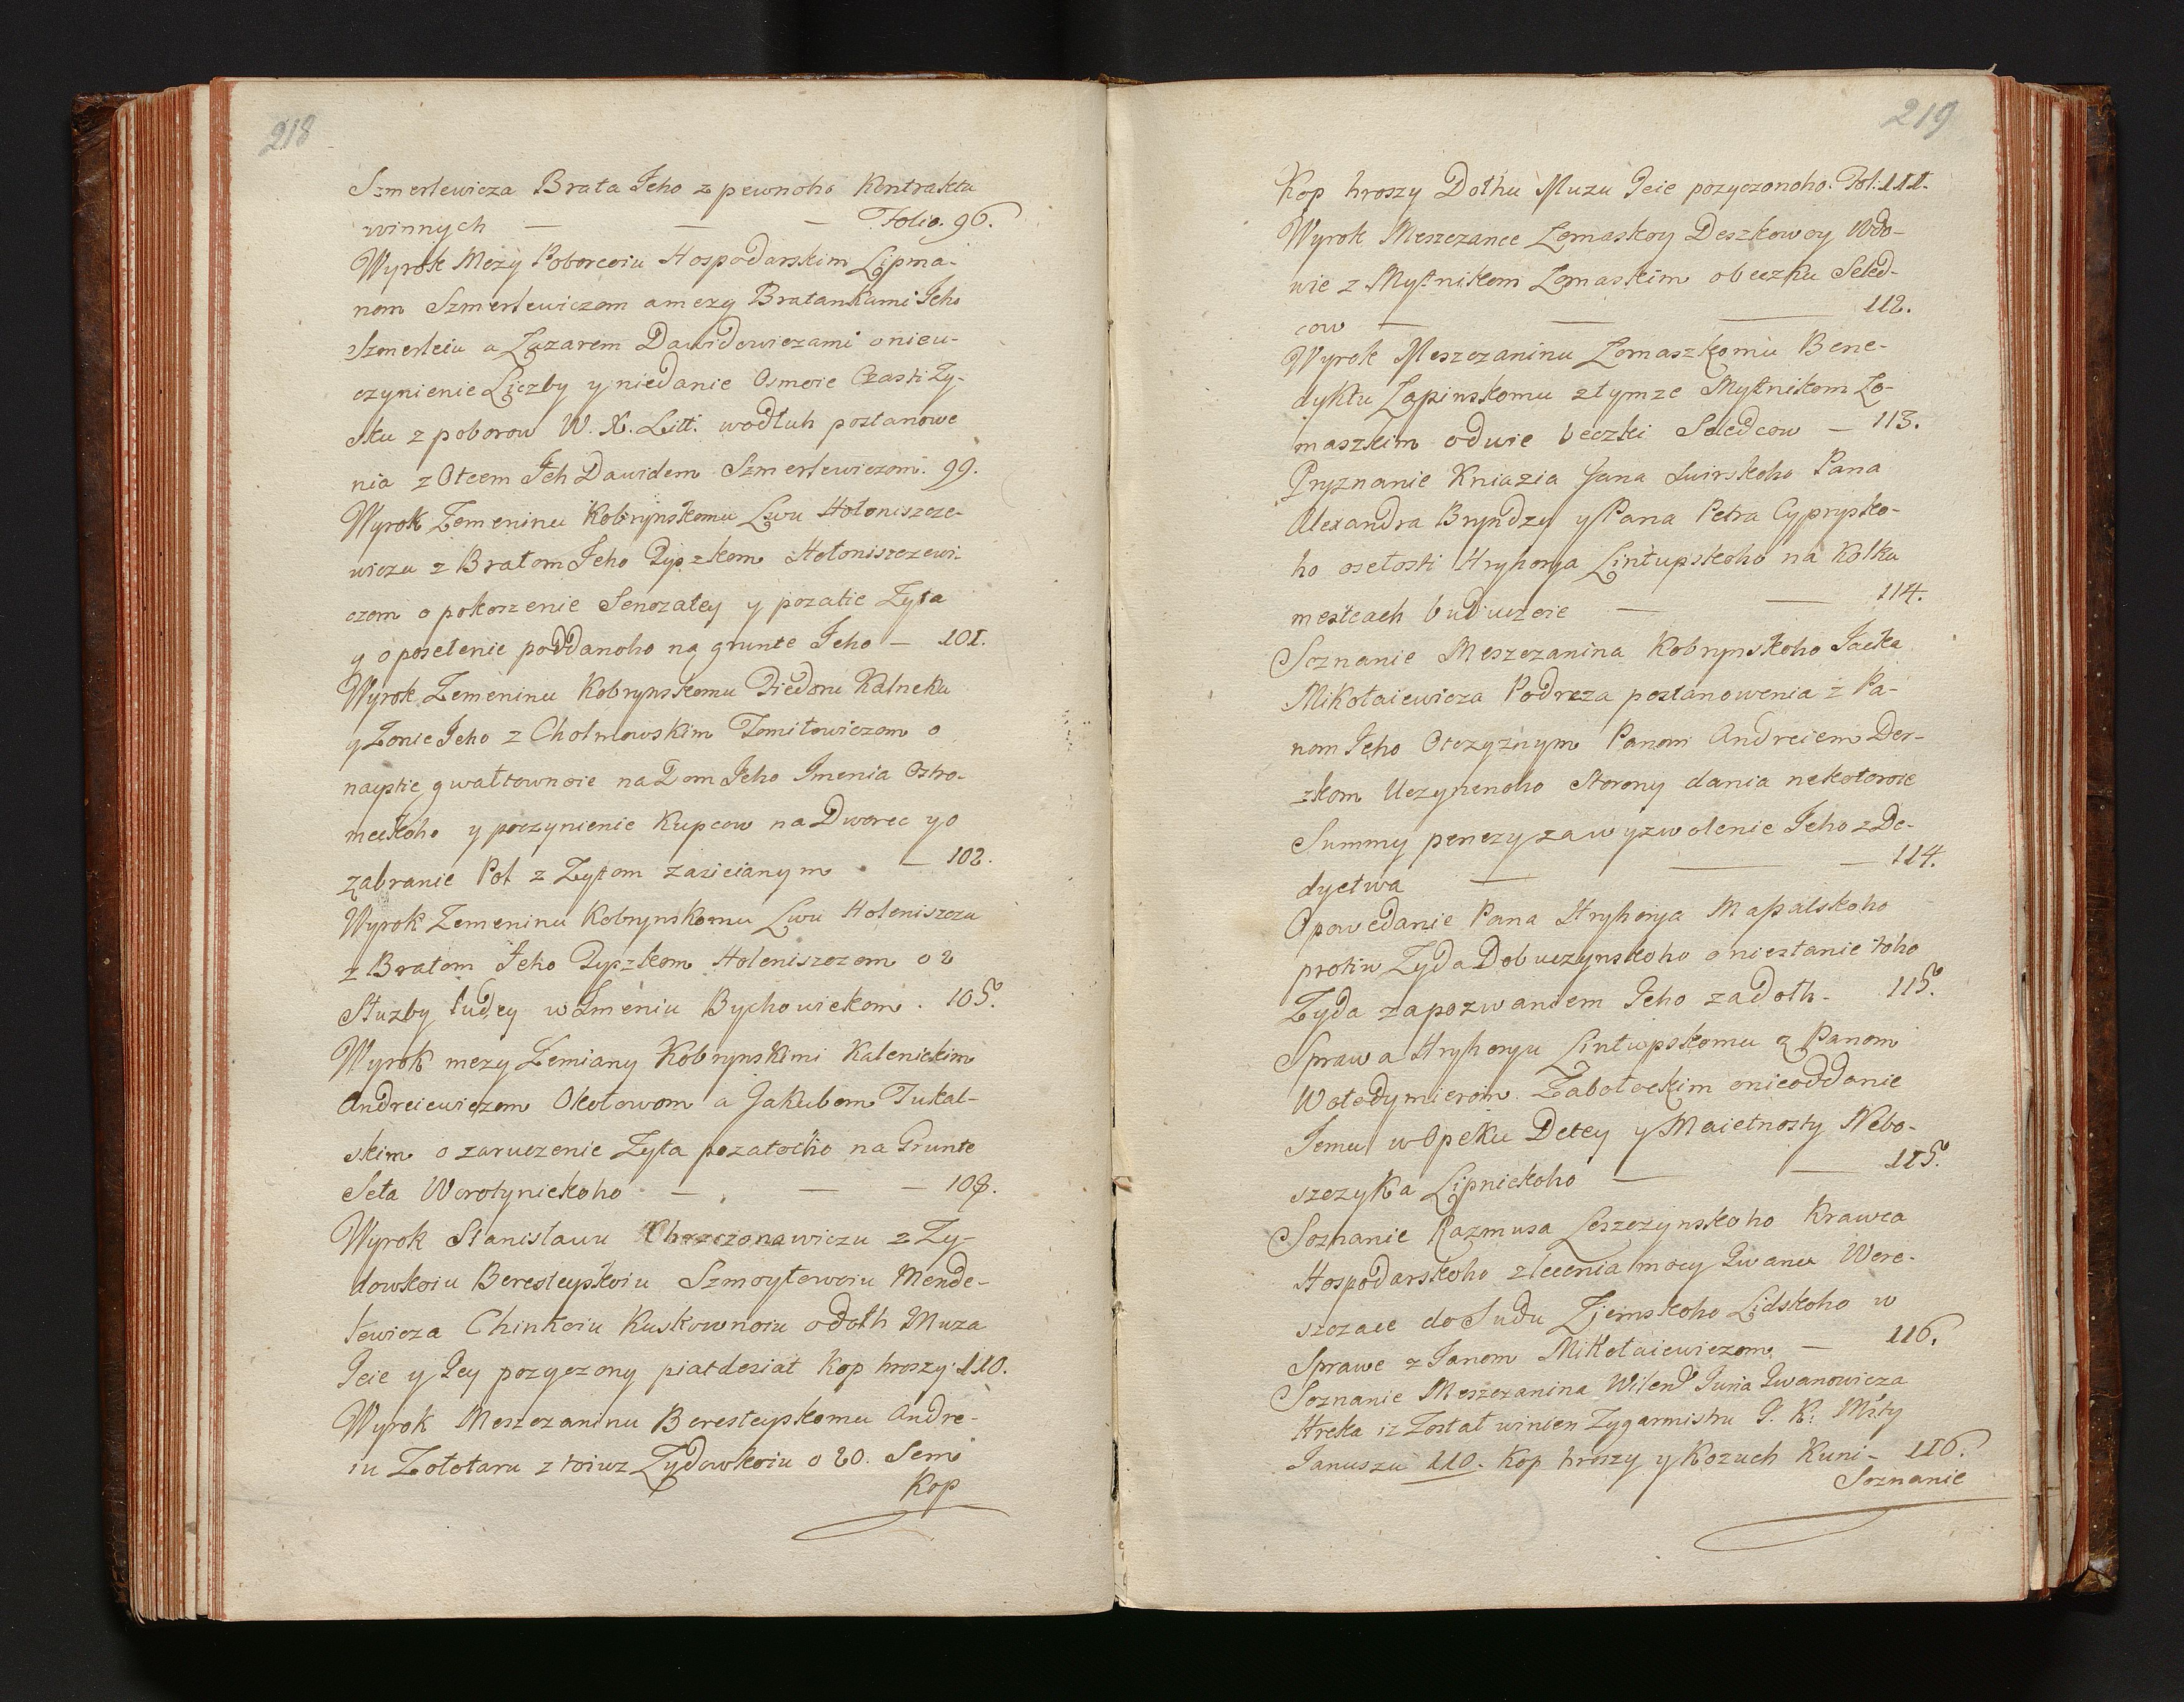 218
Szmerlewicza Brata Jeho z pewnoho Kontraktu
winnych — — — Folio. 96.
Wyrok Mezy Poborcoiu Hospodarskim Lipma-
nom Szmerlewiczom a mezy Bratankami Jeho
Szmerleiu a Lazarem Dawidowiczami o nieu-
czynienie Liczby y niedanie Osmoie Czasti Zy-
sku z poborow W. X. Litt. wodłuh postanowe
nia z Otcem Jeh Dawidem Szmerlewiczom. 99.
Wyrok Zemeninu Kobrynskomu Lwu Hołoniszcze-
wiczu z Bratom Jeho Dyszkom Hołoniszczewi-
czom o pokoszenie Senozatey y pozatie Zyta
y o poselenie poddanoho na grunte Jeho — 101.
Wyrok Zemeninu Kobrynskomu Diedoru Kalneku
y Zonie Jeho z Chołmowskim Tomiłowiczom o
nayście gwałtownoie na Dom Jeho Imenia Ostro-
meckoho y poczynienie Kupcow na Dworec y o
zabranie Pol z Zytom zasieianym — 102.
Wyrok Zemeninu Kobrynskomu Lwu Holeniszczu
z Bratom Jeho Dyszkom Holeniszczom o 2
Służby ludey w Imeniu Bychowickom. 105.
Wyrok mezy Zemiany Kobrynskimi Kalenickim
Andreiewiczom Okołowom a Jakubom Tukal-
skim o zaruczenie Zyta pozatoho na Grunte
Seła Worotynickoho — — — 108.
Wyrok Stanisławu Chrzczonowiczu z Zy-
dowkoiu Beresteyskoiu Szmoyłowoiu Mende-
lewicza Chinkoiu Kuskownoiu o dołh Muza
Jeie y Jey pozyczony piatdesiat Kop hroszy. 110.
Wyrok Meszczaninu Beresteyskomu Andre-
iu Zołotaru z toiuz Zydowkoiu o 20. Sem
Kop
219
Kop hroszy Dołhu Muzu Jeie pozyczonoho. Fol: 111.
Wyrok Meszczance Lomaskoy Deszkowey Wdo-
wie z Mytnikom Lomaskim o beczku Seled-
cow — — — 112.
Wyrok Meszczaninu Lomaszkomu Bene-
dyktu Lapinskomu z tymze Mytnikom Lo-
maszkim o dwie beczki Seledcow — 113.
Pryznanie Kniazia Jana Swirskoho Pana
Alexandra Bryndzy y Pana Petra Cyprysko-
ho osełosti Hryhorja Lintupskoho na Kolku
mestcach buduczoie — — 114.
Soznanie Meszczanina Kobrynskoho Jacka
Mikołaiewicza Podreza postanowenia z Pa-
nom Jeho Otczyznym Panom Andreiem Der-
zkom Uczynenoho Storony dania nekotoroie
Summy penezy za wyzwolenie Jeho z De-
dyctwa — — — 114.
Opowedanie Pana Hryhorja Mapalskoho
protiw Zyda Dobuczynskoho o niestanie toho
Zyda za pozwaniem Jeho za dołh. 115.
Sprawa Hryhoryu Lintupskomu z Panom
Wołodymierom Zabołockim o nieoddanie
Jemu w Opeku Detey y Maietnosty Nebo-
szczyka Lipnickoho — — 115.
Soznanie Razmusa Leszczynskoho Krawca
Hospodarskoho zlecenia mocy Iwanu Were-
szczace do Sudu Zjemskoho Lidskoho w
Sprawe z Janom Mikołaiewiczom — 116.
Soznanie Meszczanina Wilend Juria Iwanowicza
Hreka iz Został winien Zygarmistru J. K. Msty
Januszu 110. Kop hroszy y Kozuch Kuni — 116.
Soznanie